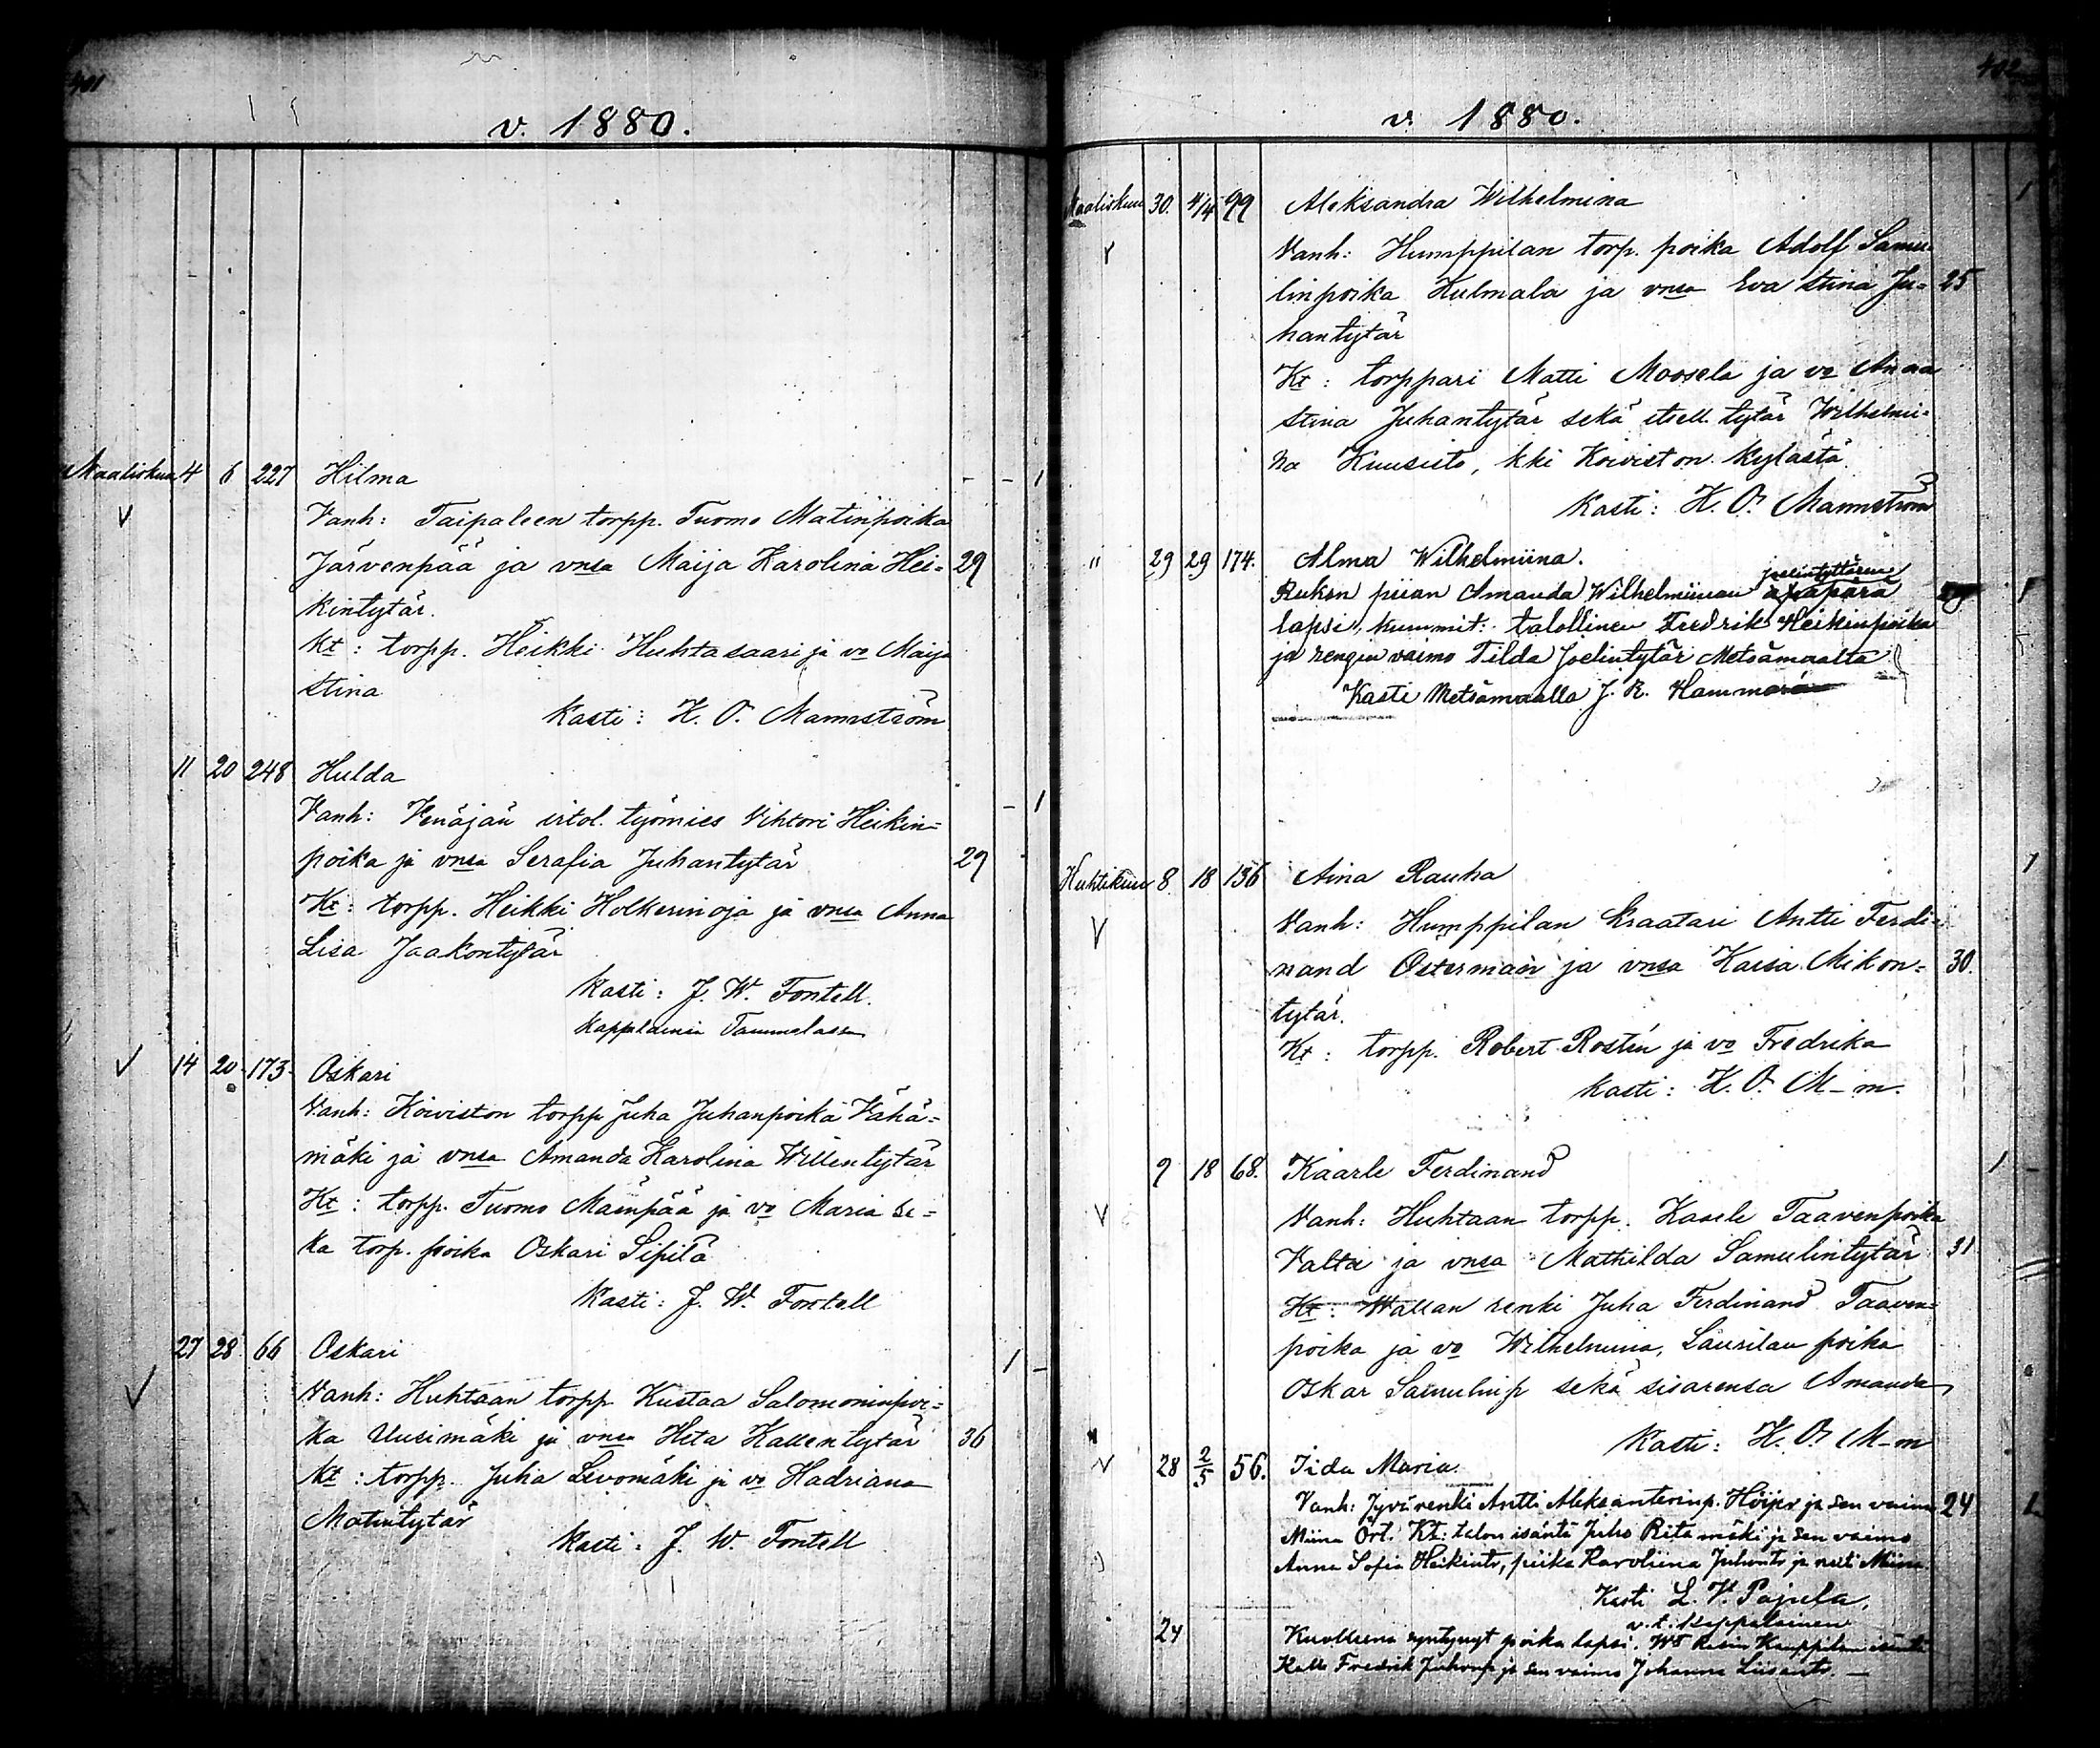 401
v. 1880.
Maaliskuu 4 6 227 Hilma - - 1
Vanh: Taipaleen torpp. Tuomo Matinpoika
Järvenpää ja vnsa Maija Karolina Hei- 29
kintytär.
Kt: torpp. Heikki Huhtasaari ja vo Maija
Stina
Kasti: K. O. Mannström
11 20 248 Hulda
Vanh: Venäjän irtol. työmies Vihtori Heikin= - 1
poika ja vnsa Serafia Juhantytär 29
Kt: torpp. Heikki Holkerinoja ja vnsa Anna
Lisa Jaakontytär
Kasti: J. W. Fontell.
Kappalainen Tammelassa
14 20 173 Oskari
Vanh: Koiviston torpp Juha Juhanpoika Vähä=
mäki ja vnsa Amanda Karolina Willentytär
Kt: torpp. Tuomo Mäenpää ja vo Maria se=
ka torp. poika Oskari Sipilä
Kasti: J. W. Fontell
27 28 66 Oskari 1 -
Vanh: Huhtaan torpp Kustaa Salomoninpoi=
ka Uusimäki ja vnsa Heta Kallentytär 36
Kt: torpp. Juha Levomäki ja vo Hadriana
Matintytär
Kasti: J. W. Fontell
402
v. 1880.
Maaliskuu 30. 4/4 99 Aleksandra Wilhelmina 1
Vanh: Humppilan torp. poika Adolf Samu=
linpoika Kulmala ja vnsa Eva Stina Ju= 25
hantytär
Kt: torppari Matti Moosela ja vo Anna
Stina Juhantytär sekä itsell. tytär Wilhelmi=
na Kuusisto, kki Koiviston kylästä.
Kasti: K. O. Mannström
" 29 29 174. Alma Wilhelmiina.
Joelintyttären
piian Amanda Wilhelmiinan äpäpärä 1
lapsi, kummit: talollinen Fredrik Heikinpoika
ja rengin vaimo Tilda Joelintytär Metsämaalta
Kasti Metsämaalla J. R. Hammarén
Huhtikuu 8 18 136 Aina Rauha 1
Vanh: Humppilan kraatari Antti Ferdi=
nand Österman ja vnsa Kaisa Mikon= 30.
tytär.
Kt: torpp. Robert Rostén ja vo Fredrika
Kasti: K. O. M-m.
9 18 68. Kaarle Ferdinand 1 -
Vanh: Huhtaan torpp. Kaarle Taavenpoika
Valta ja vnsa Mathilda Samulintytär 31
Kt: Wallan renki Juha Ferdinand Taaven=
poika ja vo Wilhelmina, Laurilan poika
Oskar Samulinp sekä sisarensa Amanda
Kasti: K. O. M-m
28 2/5 56. Iida Maria.
Vanh: Jyvärenki Antti Aleksanterinp. Höijer ja sen vaimo 24 1
Miina Ört. Kt: talon isäntä Juho Ritamäki ja sen vaimo
Anna Sofia Heikintr, piika Karoliina Juhontr ja neiti Miina
Kasti L. V. Pajula,
v.t. kappalainen
24 Kuolleena syntynyt poika lapsi. Kauppilan isäntä
Kalle Fredrik Juhonp ja sen vaimo Johanna Liisantr. —